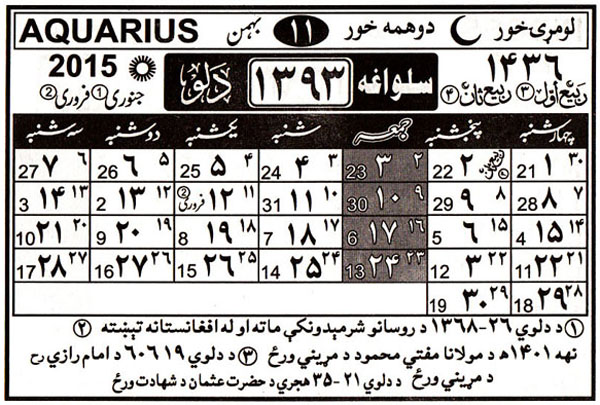 لومړی خور دوهمه خور ۱۱ بهمن AQUARIUS
۱۴۳۶ سلواغه ۱۳۹۳ دلو 2015
ربیع اول ③ ربیع ثانی ④ جنوری ① فروری ②
چهارشنبه پنجشنبه جمعه شنبه یکشنبه دوشنبه سه شنبه
۳۰ ۱ 21 ربیع ثانی ۲ 22 ۲ ۳ 23 ۳ ۴ 24 ۴ ۵ 25 ۵ ۶ 26 ۶ ۷ 27
۷ ۸ 28 ۸ ۹ 29 ۹ ۱۰ 30 ۱۰ ۱۱ 31 ۱۱ ۱۲ فروری ② ۱۲ ۱۳ 2 ۱۳ ۱۴ 3
۱۴ ۱۵ 4 ۱۵ ۶ 5 ۱۶ ۱۷ 6 ۱۷ ۱۸ 7 ۱۸ ۱۹ 8 ۱۹ ۲۰ 9 ۲۰ ۲۱ 10
۲۱ ۲۲ 11 ۲۲ ۳ 12 ۲۳ ۲۴ 13 ۲۴ ۲۵ 14 ۲۵ ۲۶ 15 ۲۶ ۲۷ 16 ۲۷ ۲۸ 17
۲۸ ۲۹ 18 ۲۹ ۳۰ 19
① د دلوې ۲۶-۱۳۶۸ د روسانو شرمیدونکې ماته او له افغانستانه تېښته ②
نهه ۱۴۰۱ھ د مولانا مفتي محمود د مړینې ورځ ③ د دلوې ۱۹ ۶۰۶ د امام رازي رح
د مړینې ورځ د دلوې ۲۱-۳۵ هجري د حضرت عثمان د شهادت ورځ